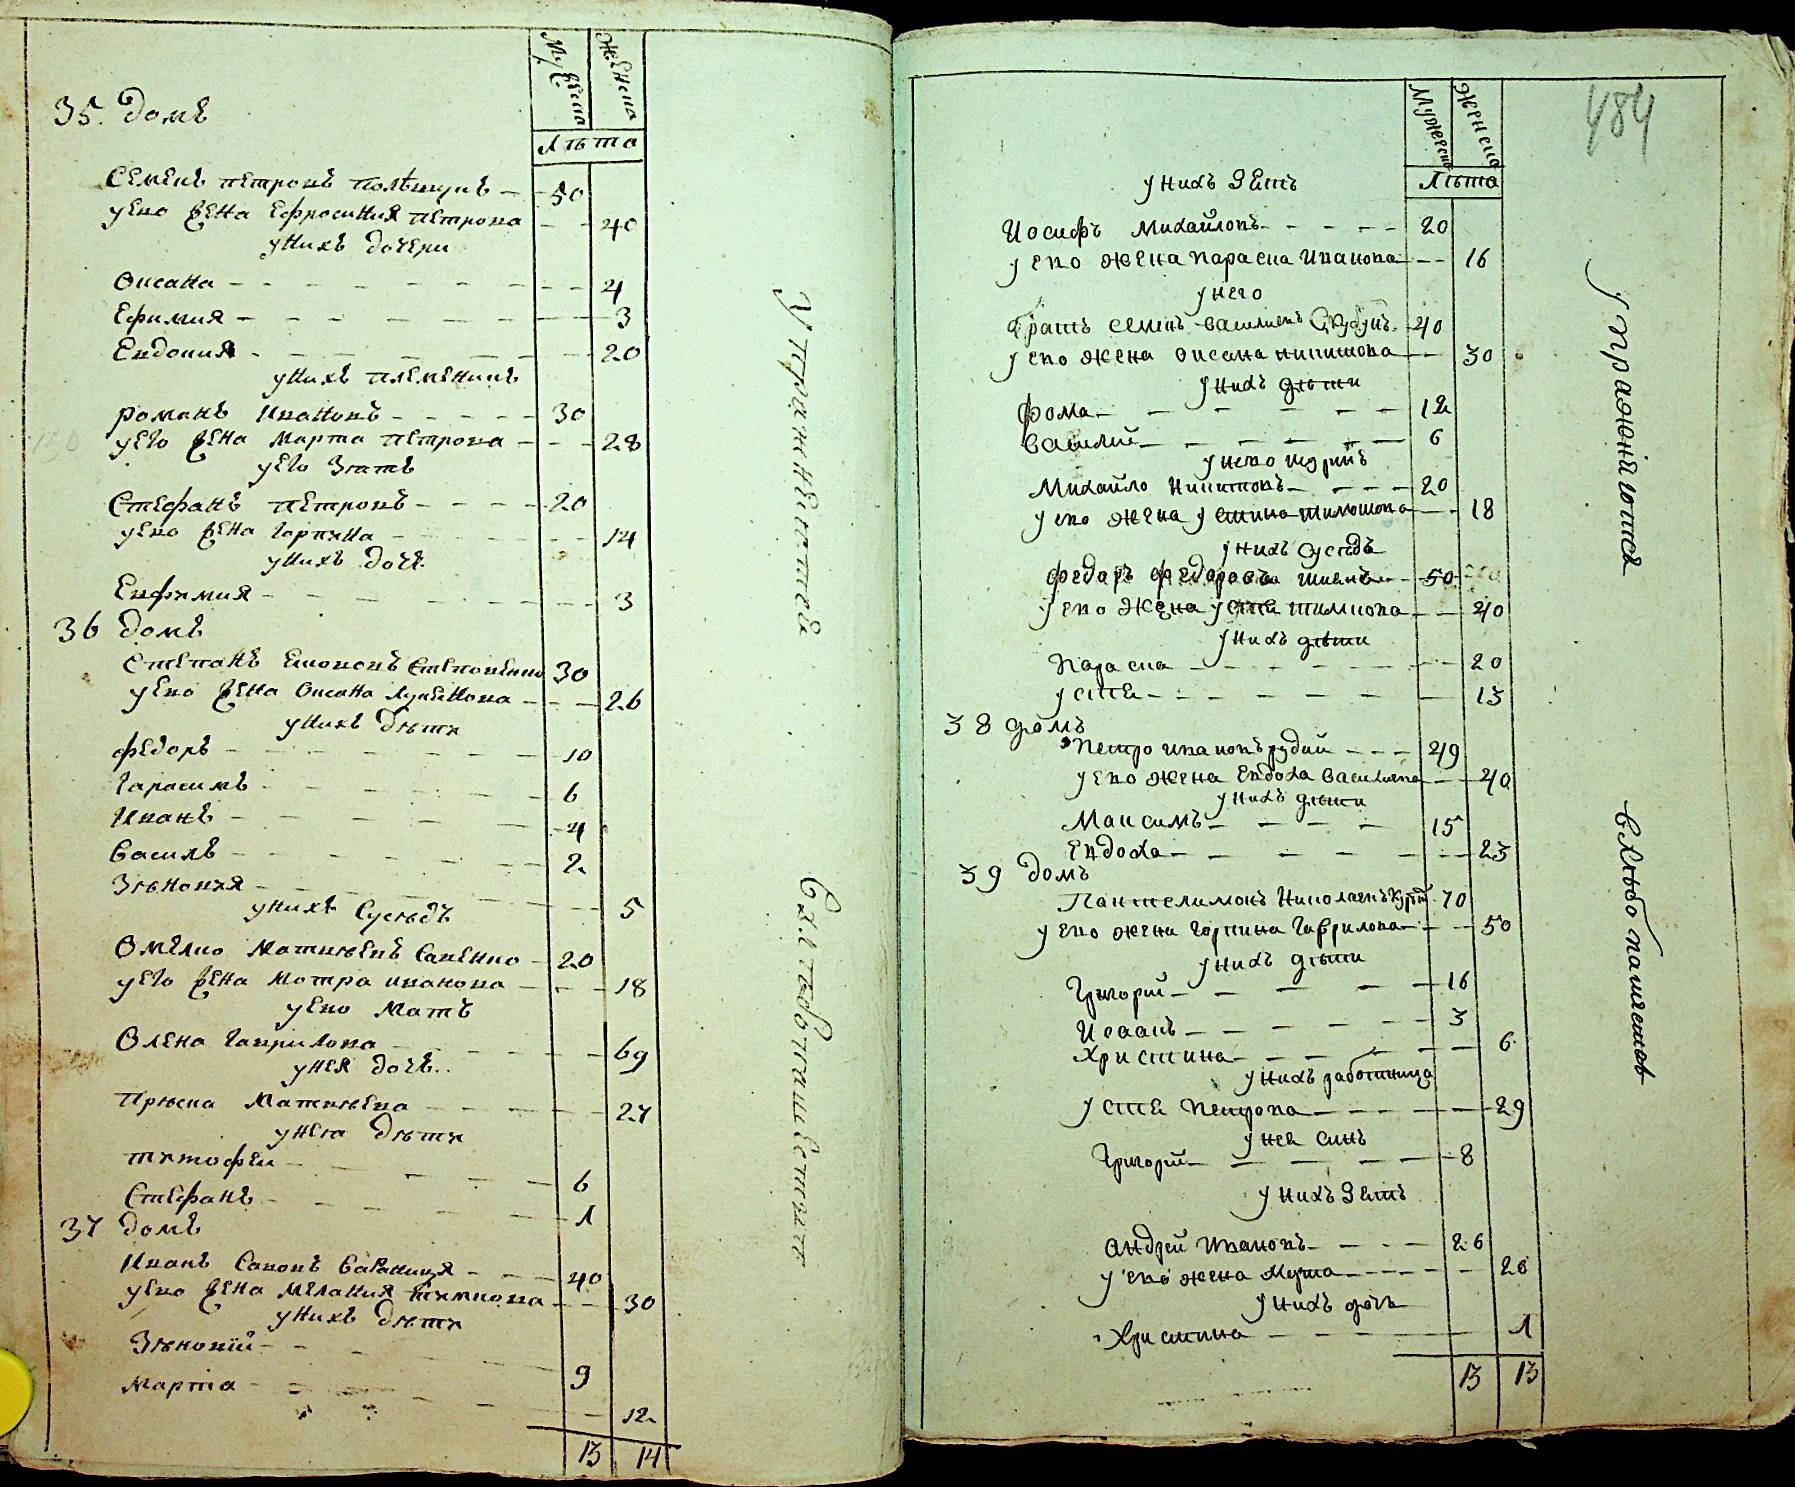 Мужеска
Женска
Лѣта
35. домъ
Семенъ Петровъ Полѣщукъ 50
у его жена Ефросиния Петрова 40
у нихъ дочери
Оксана 4
Ефимия 3
Евдокия 20
у нихъ племеникъ
романъ Ивановъ 30
у его жена Марта Петрова 28
у его Зять
Стефанъ Петровъ 20
у его жена Горпина 14
у нихъ дочъ
Евфимия 3
36 домъ
Степанъ
30
у его жена Оксана
26
у нихъ дѣти
Федоръ 10
Гарасимъ 6
Иванъ 4
Василь 2
Зѣновия 5
у нихъ Сусѣдъ
Омелко Матвѣевъ Савенко 20
у его жена Мотра иванова 18
у его Мать
Олена Гаврилова 69
у нея дочъ
Прѣска Матвѣева 27
у нея дѣти
тимофеи 6
Стефанъ 1
37 домъ
Иванъ Савовъ
40
у его жена Мелания
30
у нихъ дѣти
Зѣновий 9
Марта 12
13 14
Упражняются
в хлѣбопашествѣ
484
Мужеска
Женска
Лѣта
у нихъ Зять
Иосифъ Михайловъ 20
у его жена Параска Иванова 16
у него
братъ Семенъ Василиевъ
40
у его жена Оксана Никитова 30
у нихъ дѣти
Фома 12
Василий 6
у него шуринъ
Михайло Никитовъ 20
у его жена Устина Тимошова 18
у нихъ сусѣдъ
Федаръ Федаравъ
50
у его жена Устя
40
у нихъ дѣти
Параска 20
Устя 13
38 домъ
Петро Ивановъ рудий 49
у его жена Евдоха Василиева 40
у нихъ дѣти
Максимъ 15
Евдоха 23
39 домъ
Пантелимонъ Николаевъ
70
у его жена Горпина Гаврилова 50
у нихъ дѣти
Григорий 16
Исаакъ 3
Христина 6
у нихъ работница
Устя Петрова 29
у нея синъ
Григорий 8
у нихъ Зять
Андрей Ивановъ 26
у его жена Марта 20
у нихъ дочь
Христина 1
13 13
Упражняются
в хлѣбопашествѣ